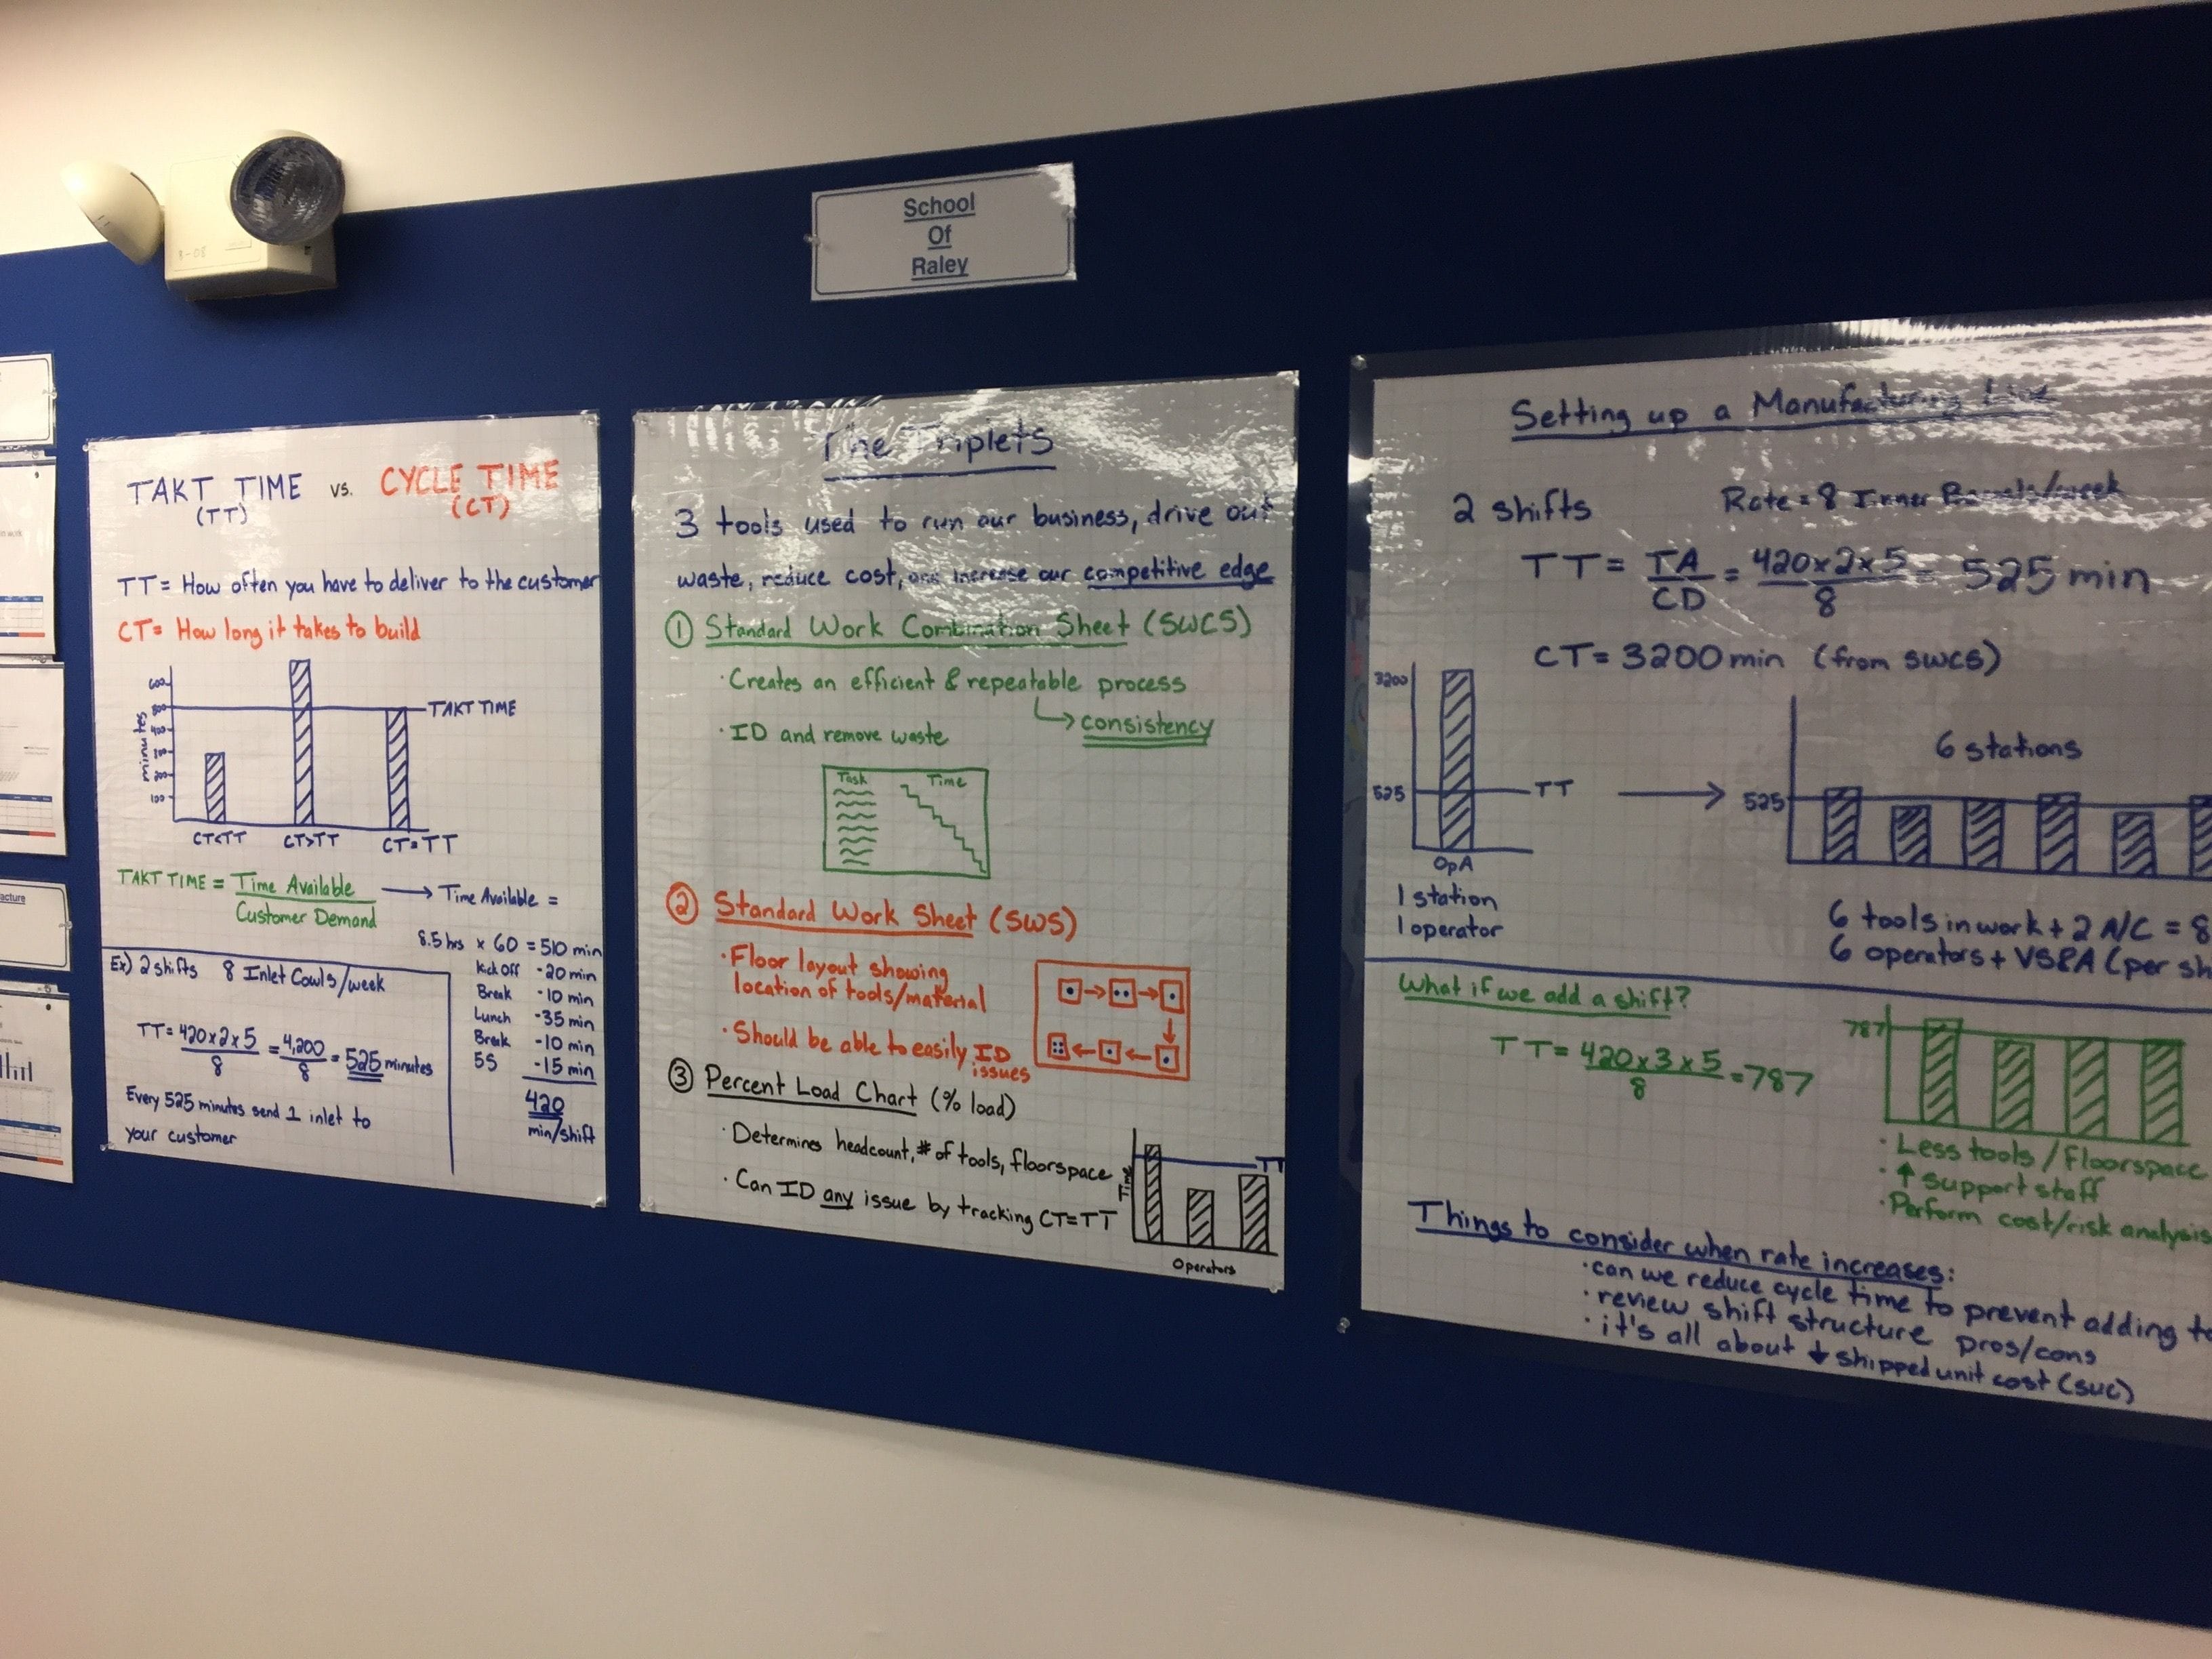 School
Of
Raley
acture
TAKT TIME vs. CYCLE TIME
(TT) (CT)
TT = How often you have to deliver to the customer
CT = How long it takes to build
minutes
600
500
400
300
200
100
TAKT TIME
CT<TT CT>TT CT=TT
TAKT TIME = Time Available → Time Available =
Customer Demand
8.5 hrs x 60 = 510 min
Kick Off -20 min
Break -10 min
Lunch -35 min
Break -10 min
5S -15 min
420
min/shift
Ex) 2 shifts 8 Inlet Cowls/week
TT = 420x2x5 = 4,200 = 525 minutes
8 8
Every 525 minutes send 1 inlet to
your customer
The Triplets
3 tools used to run our business, drive out
waste, reduce cost, and increase our competitive edge
① Standard Work Combination Sheet (SWCS)
· Creates an efficient & repeatable process
↳ consistency
· ID and remove waste
Task Time
② Standard Work Sheet (SWS)
· Floor layout showing
location of tools/material
· Should be able to easily ID
issues
③ Percent Load Chart (% load)
· Determines headcount, # of tools, floorspace
· Can ID any issue by tracking CT=TT
Time
TT
Operators
Setting up a Manufacturing Line
2 shifts Rate = 8 Inner Barrels/week
TT = TA = 420x2x5 = 525 min
CD 8
CT = 3200 min (from SWCS)
3200
525 TT
OpA
1 station
1 operator
→
6 stations
525
6 tools in work + 2 A/C = 8
6 operators + VSPA (per sh
What if we add a shift?
TT = 420x3x5 = 787
8
787
· Less tools/floorspace
· ↑ support staff
· Perform cost/risk analysis
Things to consider when rate increases:
· can we reduce cycle time to prevent adding to
· review shift structure pros/cons
· it's all about ↓ shipped unit cost (SUC)